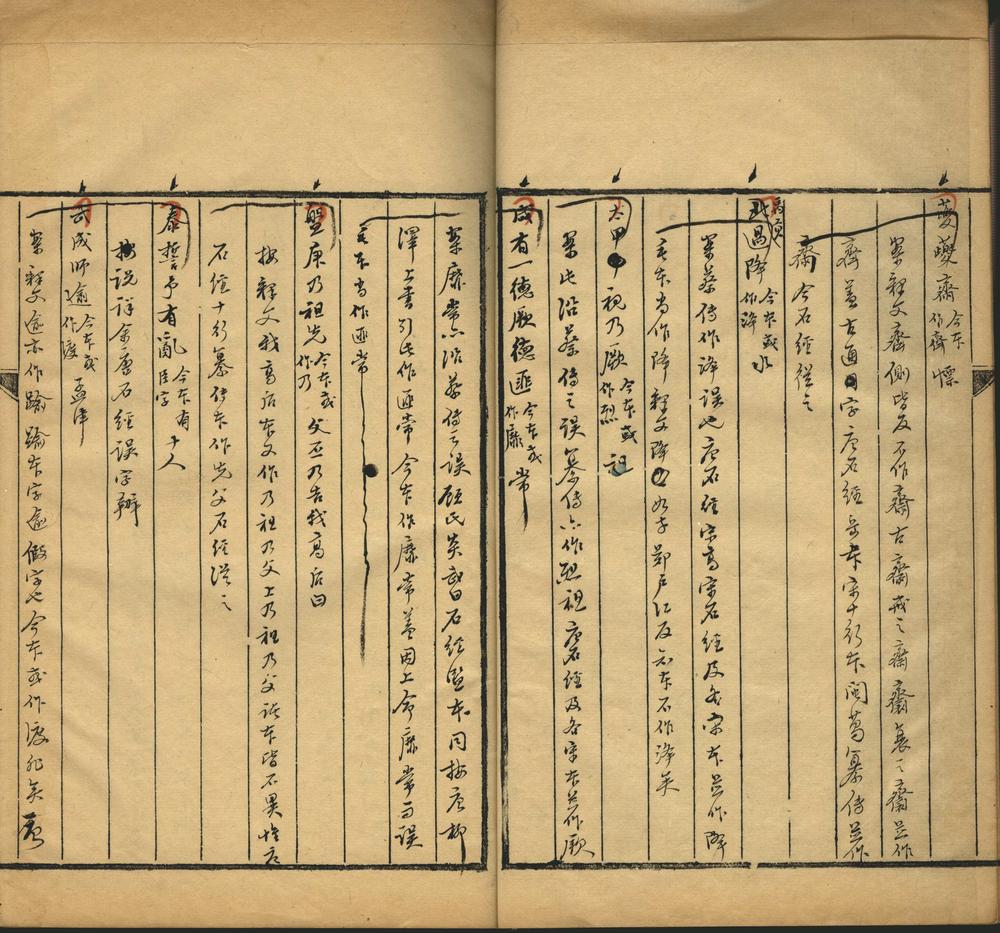 夔夔齋今本作齊慄
案釋文齋側皆反不作齋古齋戒之齋齋衰之齋並作
齊蓋古通用字唐石經岳本宋十行本閩葛纂傳並作
齋今石經從之
北過降今本或作洚水
案蔡傳作洚誤也唐石經宋高宗石經及各宋本並作降
岳本尚作降釋文降如字鄭戶江反知本不作洚矣
太甲中視乃厥今本或作烈祖
案此沿蔡傳之誤纂傳亦作烈祖唐石經及各宋本並作厥
咸有一德厥德匪今本或作靡常
案靡常亦沿蔡傳之誤顧氏炎武曰石經監本同按唐柳
澤上書引此作匪常今本作靡常蓋因上命靡常而誤
岳本尚作匪常
盤庚乃祖先今本或作乃父丕乃告我高后曰
按釋文我高后本又作乃祖乃父上乃祖乃父諸本皆不異惟唐
石經十行纂傳本作先父石經從之
泰誓予有亂今本有臣字十人
按說詳余唐石經誤字辨
武成師逾今本或作渡孟津
案釋文逾亦作踰踰本字逾假字也今本或作渡非矣